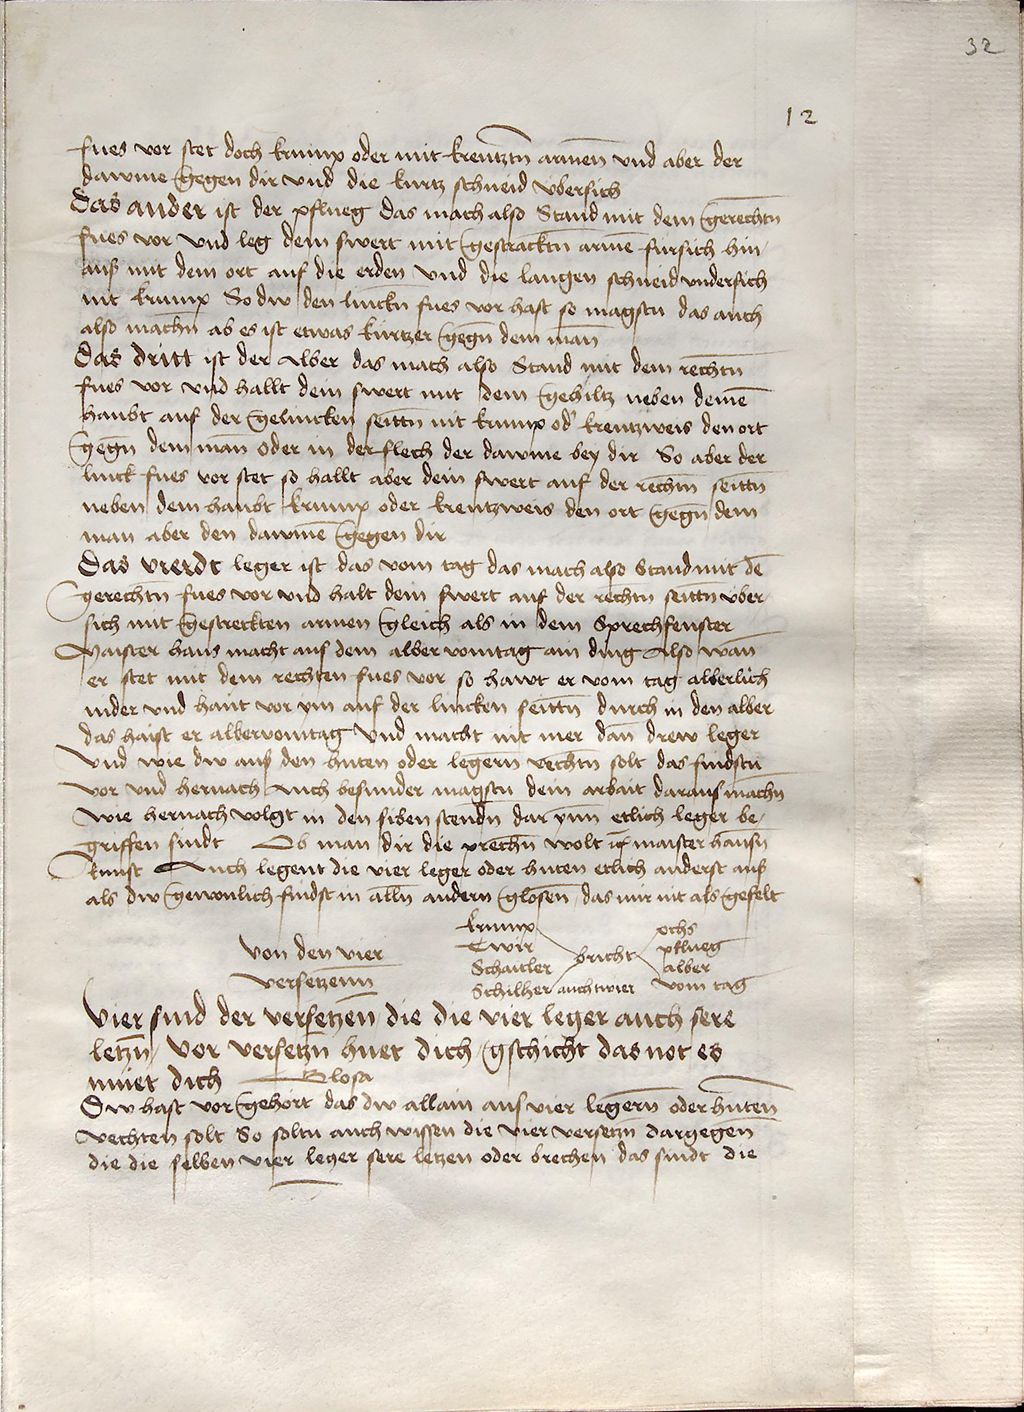 32
12
fues vor stet doch krump oder mit kreutztn̄ armen̄ vnd aber der
dawme gegen dir vnd die kurtz schneid vbersich
Das ander ist der pflueg das mach also Stand mit dem gerechtn̄
fues vor vnd leg dem swert mit gestracktn̄ armē fursich hin/
aus mit dem ort auf die erden vnd die langen schneid vndersich
nit krump So dw den linckn̄ fues vor hast so magstu das auch
also machn̄ ab es ist etwas kurtzer gegn̄ dem man̄
Das dritt ist der Alber das mach also Stand mit dem rechtn̄
fues vor vnd hallt dein swert mit dem gehiltz neben deinē
haubt auf der gelincken seittn̄ nit krump od' kreutzweis den ort
gegn̄ dem man̄ oder in der flech der dawme bey dir So aber der
linck fues vor stet so hallt aber dein swert auf der rechtn̄ seittn̄
neben dem haubt krump oder kreutzweis den ort gegn̄ dem
man aber den dawmē gegen dir
Das vierdt leger ist das vom tag das mach also Stand mit dē
gerechtn̄ fues vor vnd halt dein swert auf der rechtn̄ seittn̄ vber/
sich mit gestreckten armen gleich als in dem Sprechfenster
Maister hans macht auf dem alber vomtag ain ding Also wan̄
er stet mit dem rechten fues vor so hawt er vom tag alberlich
nider vnd haut vor ym auf der lincken seittn̄ durch in den alber
das haist er albervomtag Vnd macht nit mer dan̄ drew leger
Vnd wie dw aus den huten oder legern̄ vechtn̄ solt das findstu
vor vnd hernach Auch besunder magstu dein arbait daraus machn̄
wie hernach volgt in den siben stendn̄ dar ynn̄ etlich leger be/
griffen sindt Ob man dir die prechn̄ wolt maister hansn̄
kunst Auch legent die vier leger oder huten etlich anderst aus
als dw gewonlich findst in alln̄ andern glosen̄ das mir nit als gefelt
Von den vier
versetzenn̄
krump
Twir
Schaitler
Schilher auch twier
bricht
ochs
pflueg
alber
vom tag
Vier sind der versetzen̄ die die vier leger auch sere
letzn̄ / Vor versetzn̄ huet dich / gschicht das not es
muet dich Glosa
Dw hast vor gehort das dw allain aus vier legern̄ oder huten̄
vechten solt So soltu auch wissen die vier versetzn̄ dargegen̄
die die selben vier leger sere letzen oder brechen das sindt die